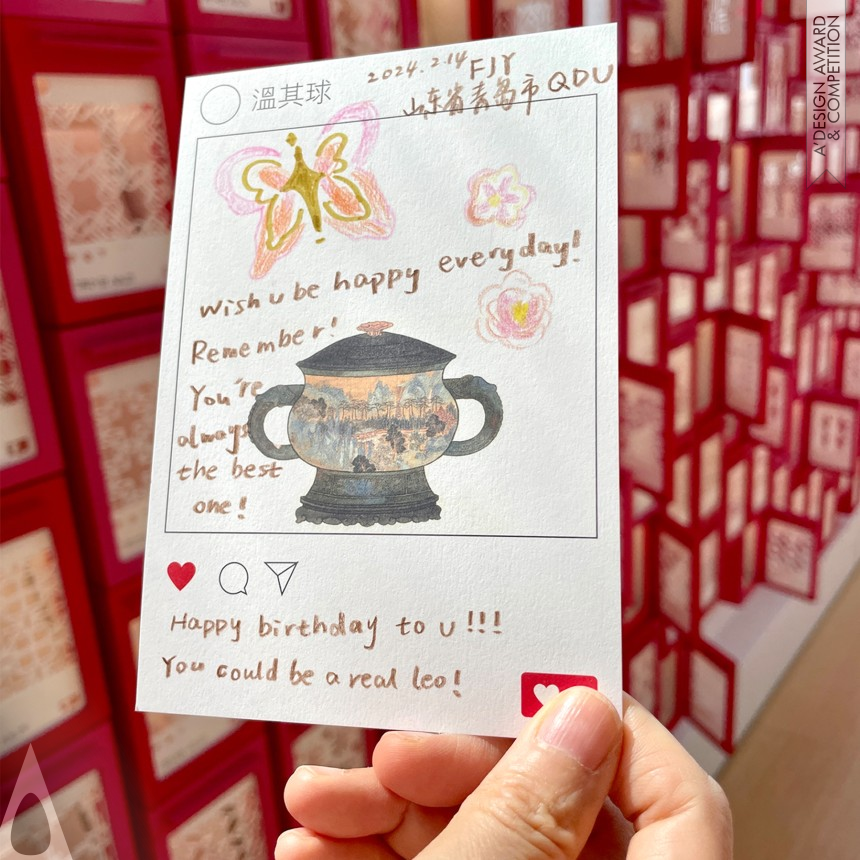 2024.2.14 FJY
山东省青岛市 QDU
溫其球
wish u be happy everyday!
Remember!
You're
always
the best
one!
Happy birthday to u!!!
You could be a real leo!
A'DESIGN AWARD
& COMPETITION